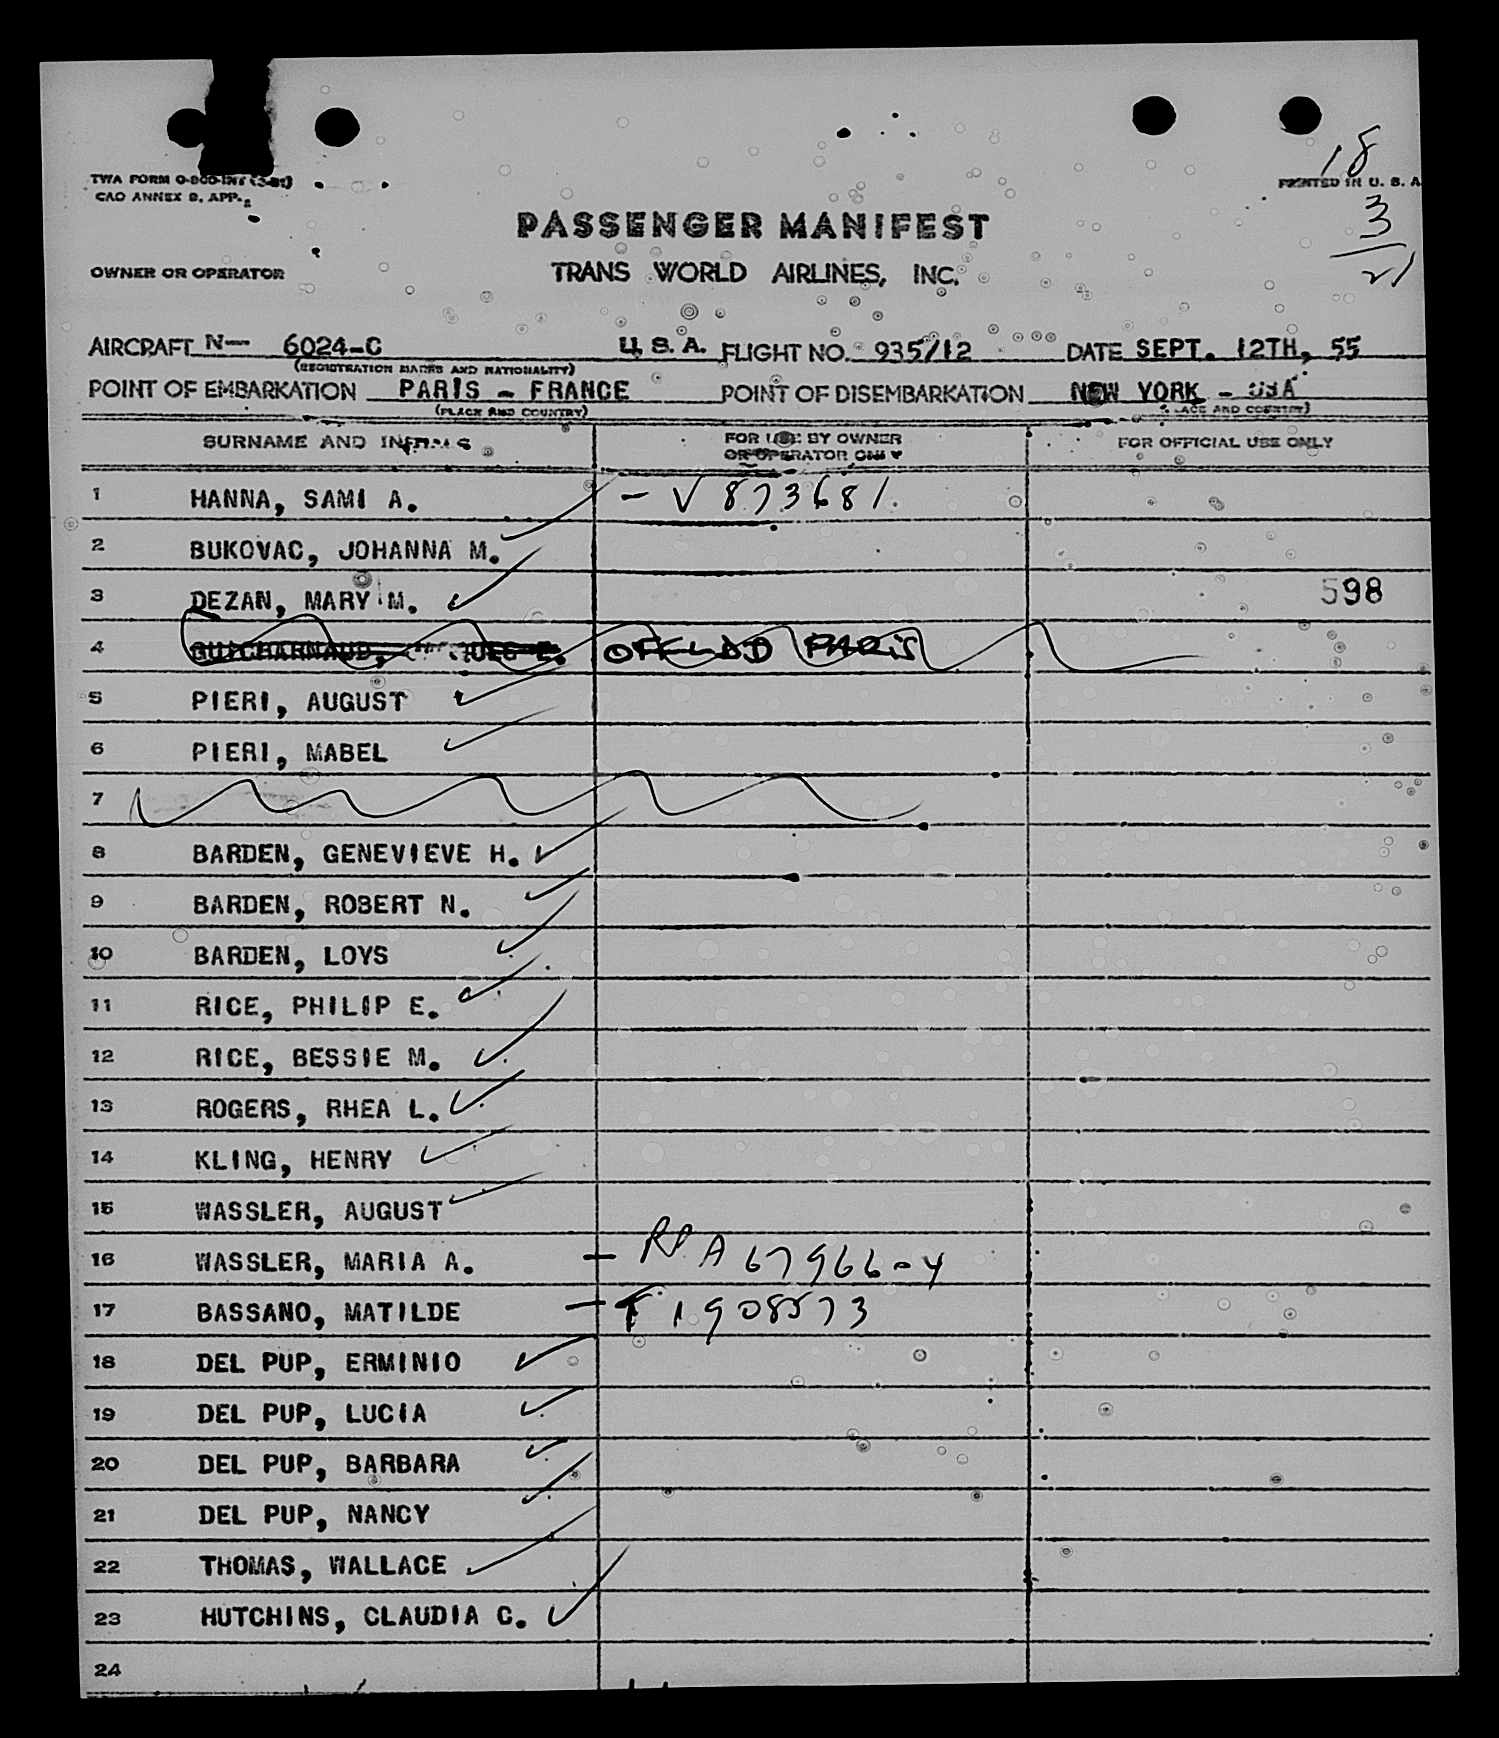 TWA FORM
CAO ANNEX 9, APP. 2
PRINTED IN U. S. A
18
3
21
PASSENGER MANIFEST
OWNER OR OPERATOR TRANS WORLD AIRLINES, INC.
AIRCRAFT N— 6024-C U. S. A. FLIGHT NO. 935/12 DATE SEPT. 12TH, 55
(REGISTRATION MARKS AND NATIONALITY)
POINT OF EMBARKATION PARIS - FRANCE POINT OF DISEMBARKATION NEW YORK - USA
(PLACE AND COUNTRY) (PLACE AND COUNTRY)
SURNAME AND INITIALS FOR USE BY OWNER OR OPERATOR ONLY FOR OFFICIAL USE ONLY
1 HANNA, SAMI A. - V 873681.
2 BUKOVAC, JOHANNA M.
3 DEZAN, MARY M. 598
4 OFFLOAD PARIS
5 PIERI, AUGUST
6 PIERI, MABEL
7
8 BARDEN, GENEVIEVE H.
9 BARDEN, ROBERT N.
10 BARDEN, LOYS
11 RICE, PHILIP E.
12 RICE, BESSIE M.
13 ROGERS, RHEA L.
14 KLING, HENRY
15 WASSLER, AUGUST
16 WASSLER, MARIA A. - RP A67966-4
17 BASSANO, MATILDE - 1908573
18 DEL PUP, ERMINIO
19 DEL PUP, LUCIA
20 DEL PUP, BARBARA
21 DEL PUP, NANCY
22 THOMAS, WALLACE
23 HUTCHINS, CLAUDIA C.
24